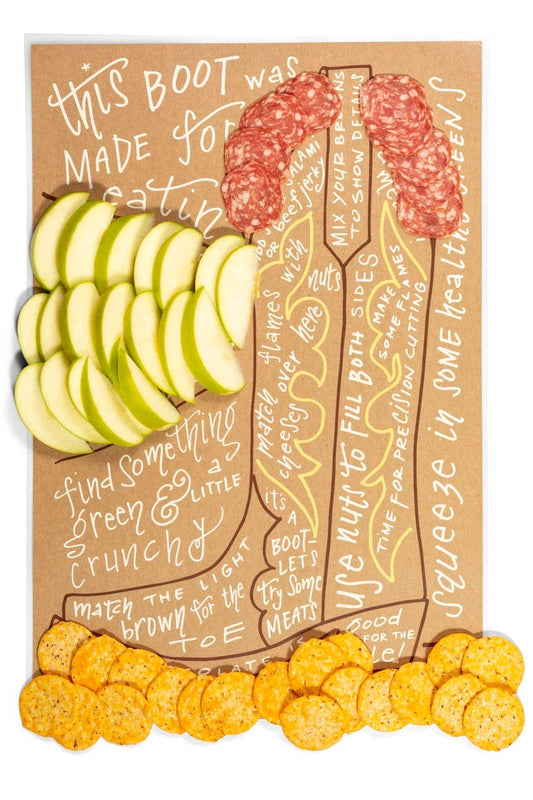 this BOOT was
MADE for
eatin
SALAMI
or beef jerky
MIX YOUR BROWNS
TO SHOW DETAILS
match flames with nuts
cheeses over here
use nuts to FILL BOTH SIDES
MAKE
SOME FLAMES
TIME FOR PRECISION CUTTING
squeeze in SOME healthy GREENS
find something
green & a LITTLE
crunchy
it's
A
BOOT-
LET'S
try some
MEATS
match THE LIGHT
brown for the
TOE
good
FOR THE